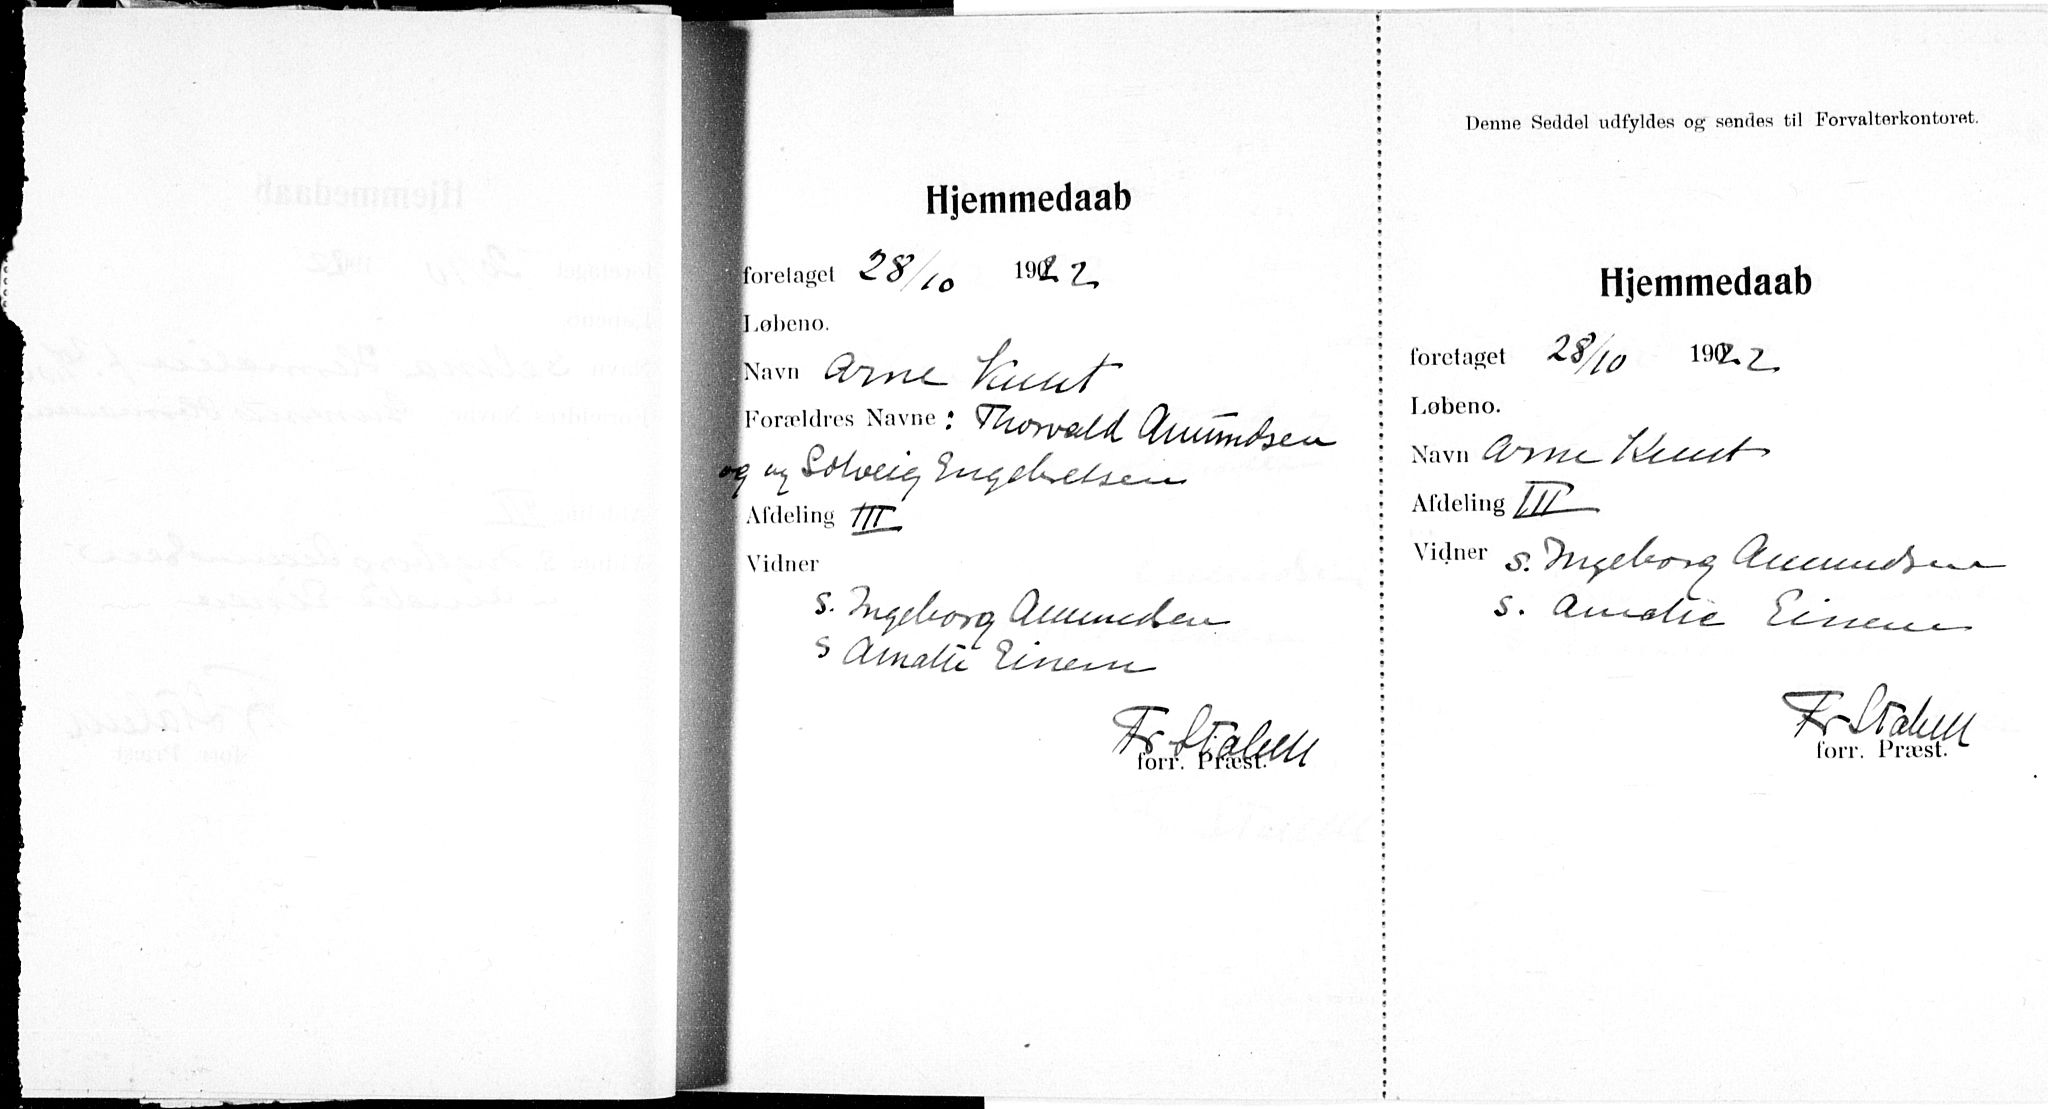 Hjemmedaab
foretaget 28/10 1922
Løbeno.
Navn Arne Knut
Forældres Navne: Thorvald Amundsen
og Solveig Engebretsen
Afdeling III
Vidner
S. Ingeborg Amundsen
S Amalie Einem
forr. Præst.
Denne Seddel udfyldes og sendes til Forvalterkontoret.
Hjemmedaab
foretaget 28/10 1922
Løbeno.
Navn Arne Knut
Afdeling III
Vidner S. Ingeborg Amundsen
S. Amalie Einem
forr. Præst.